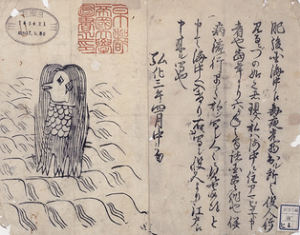 肥後国海中え毎夜光物出ル所之役人行
見るニづの如く者現ス私ハ海中ニ住アマビヱト申
者也当年より六ヶ年之間諸国豊作也併
病流行早々私シ写シ人々ニ見セ候得と
申て海中へ入けり右ハ写シ役人より江戸え
申来ル写也
弘化三年四月中旬